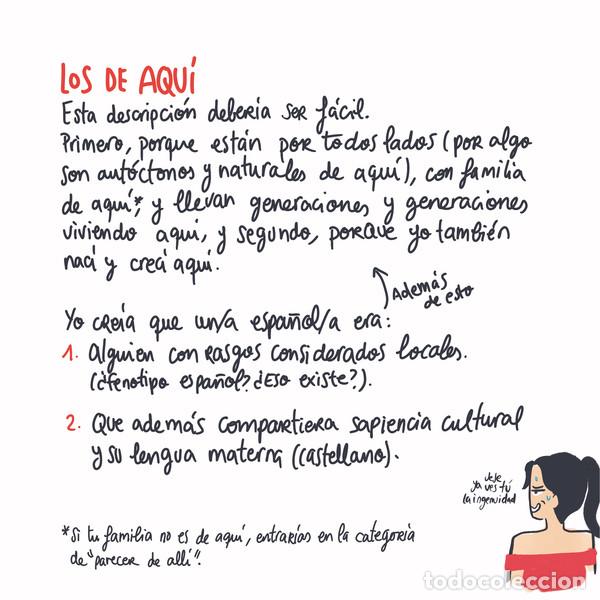 LOS DE AQUÍ
Esta descripción debería ser fácil.
Primero, porque están por todos lados (por algo
son autóctonos y naturales de aquí), con familia
de aquí*, y llevan generaciones y generaciones
viviendo aquí, y segundo, porque yo también
nací y crecí aquí.
Además
de esto
Yo creía que un/a español/a era:
1. Alguien con rasgos considerados locales.
(¿fenotipo español? ¿Eso existe?).
2. Que además compartiera sapiencia cultural
y su lengua materna (castellano).
jeje
ya ves tú
la ingenuidad
*Si tu familia no es de aquí, entrarías en la categoría
de "parecer de allí".
todocoleccion